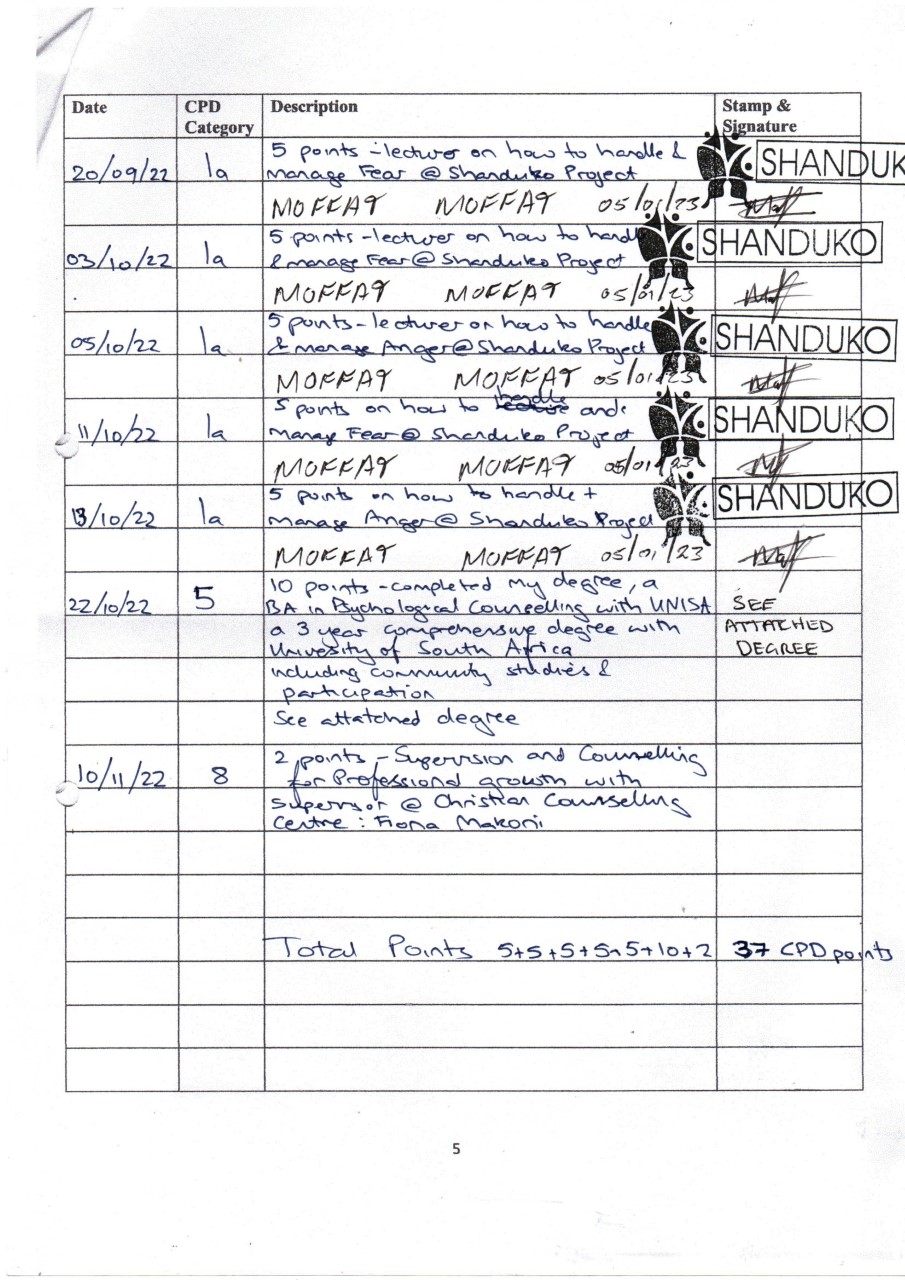 Date CPD Category Description Stamp & Signature
5 points - lecturer on how to handle &
20/09/22 1a manage Fear @ Shanduko Project SHANDUK
MOFFAT MOFFAT 05/01/23
5 points - lecturer on how to handl
03/10/22 1a & manage Fear @ Shanduko Project SHANDUKO
MOFFAT MOFFAT 05/01/23
5 points - lecturer on how to handle
05/10/22 1a & manage Anger @ Shanduko Project SHANDUKO
MOFFAT MOFFAT 05/01/23
5 points on how to handle and
11/10/22 1a manage Fear @ Shanduko Project SHANDUKO
MOFFAT MOFFAT 05/01/23
5 points on how to handle +
13/10/22 1a manage Anger @ Shanduko Project SHANDUKO
MOFFAT MOFFAT 05/01/23
10 points - completed my degree, a
22/10/22 5 BA in Psychological Councelling with UNISA SEE
a 3 year comprehensive degree with ATTATCHED
University of South Africa DEGREE
including community studies &
participation
See attatched degree
2 points - Supervision and Counselling
10/11/22 8 for Professional growth with
Supervisor @ Christian Counselling
Centre : Fiona Makoni
Total Points 5+5+5+5+5+10+2 37 CPD points
5